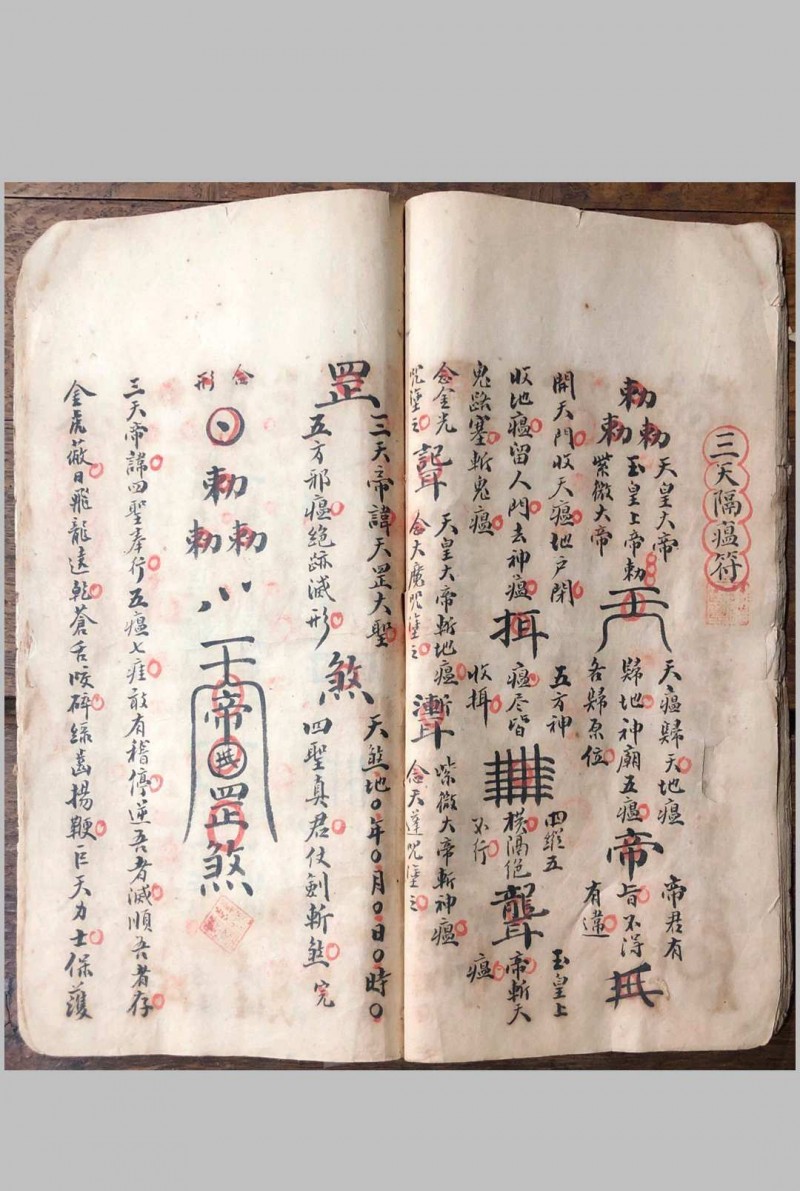 三天隔瘟符
勅勅勅
天皇大帝
玉皇上帝勅
紫微大帝
天瘟歸天地瘟
歸地神廟五瘟
各歸原位
帝
帝君有
旨不得
有違
開天門收天瘟地戶閉
收地瘟留人門去神瘟
鬼路塞斬鬼瘟
五方神
瘟尽皆
收
四縱五
横隔絕
不行
玉皇上
帝斬天
瘟
念金光
咒塗之
天皇大帝斬地瘟
念天魔咒塗之
紫微大帝斬神瘟
念天蓬咒塗之
罡
三天帝諱天罡大聖
五方邪瘟絕跡滅形
煞
天煞地〇年〇月〇日〇時〇
四聖真君仗劍斬煞完
合形
勅勅勅
帝
罡
煞
三天帝諱四聖奉行五瘟七瘧敢有稽停逆吾者滅順吾者存
金虎蔽日飛龍遠乾蒼舌咬碎綠齒揚鞭巨天力士保護